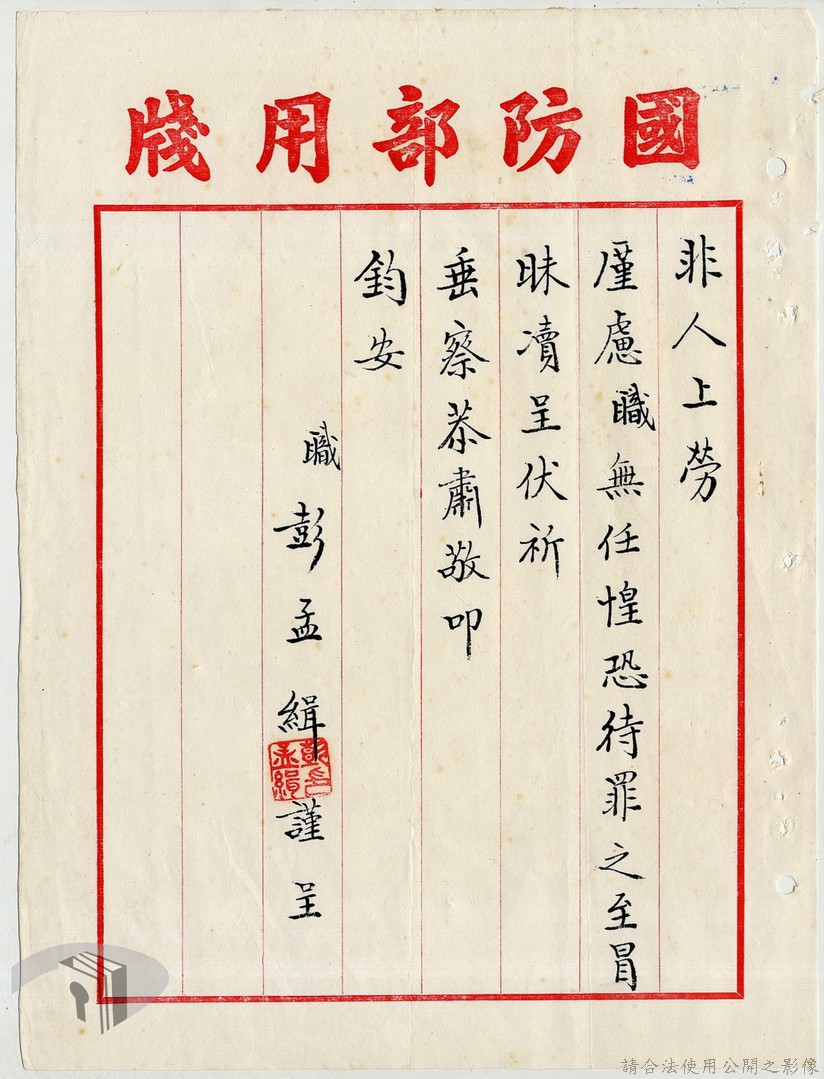 國防部用牋
非人上勞
廑慮職無任惶恐待罪之至冒
昧瀆呈伏祈
垂察恭肅敬叩
鈞安
職彭孟緝謹呈
彭孟緝印
請合法使用公開之影像